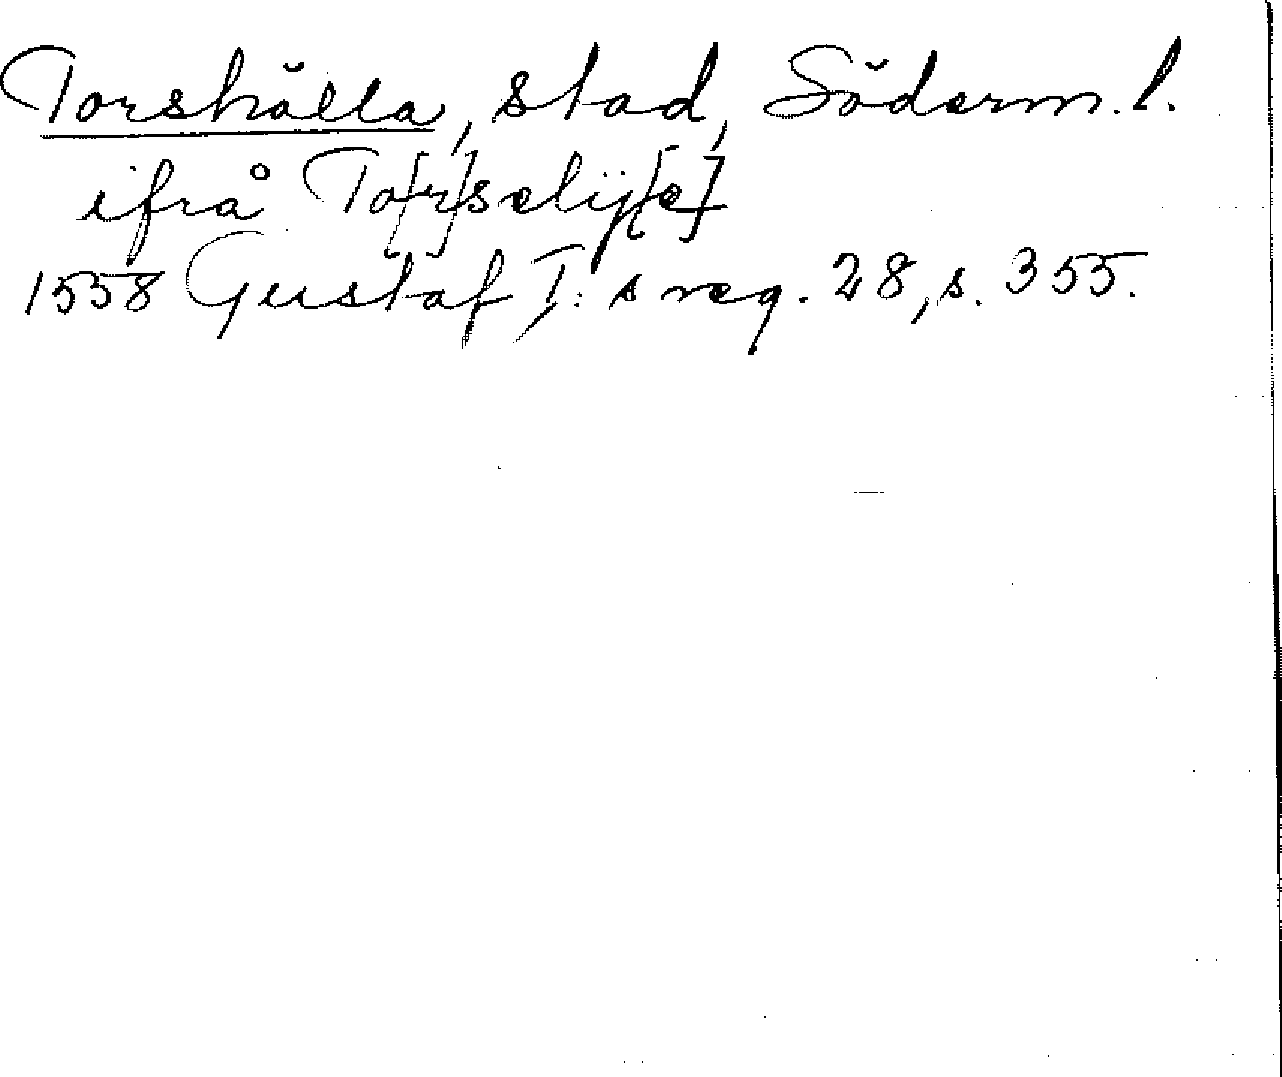 Torshälla, stad, Söderm. l.
ifrå To[r]selÿ[e]
1558 Gustaf I:s reg. 28, s. 355.